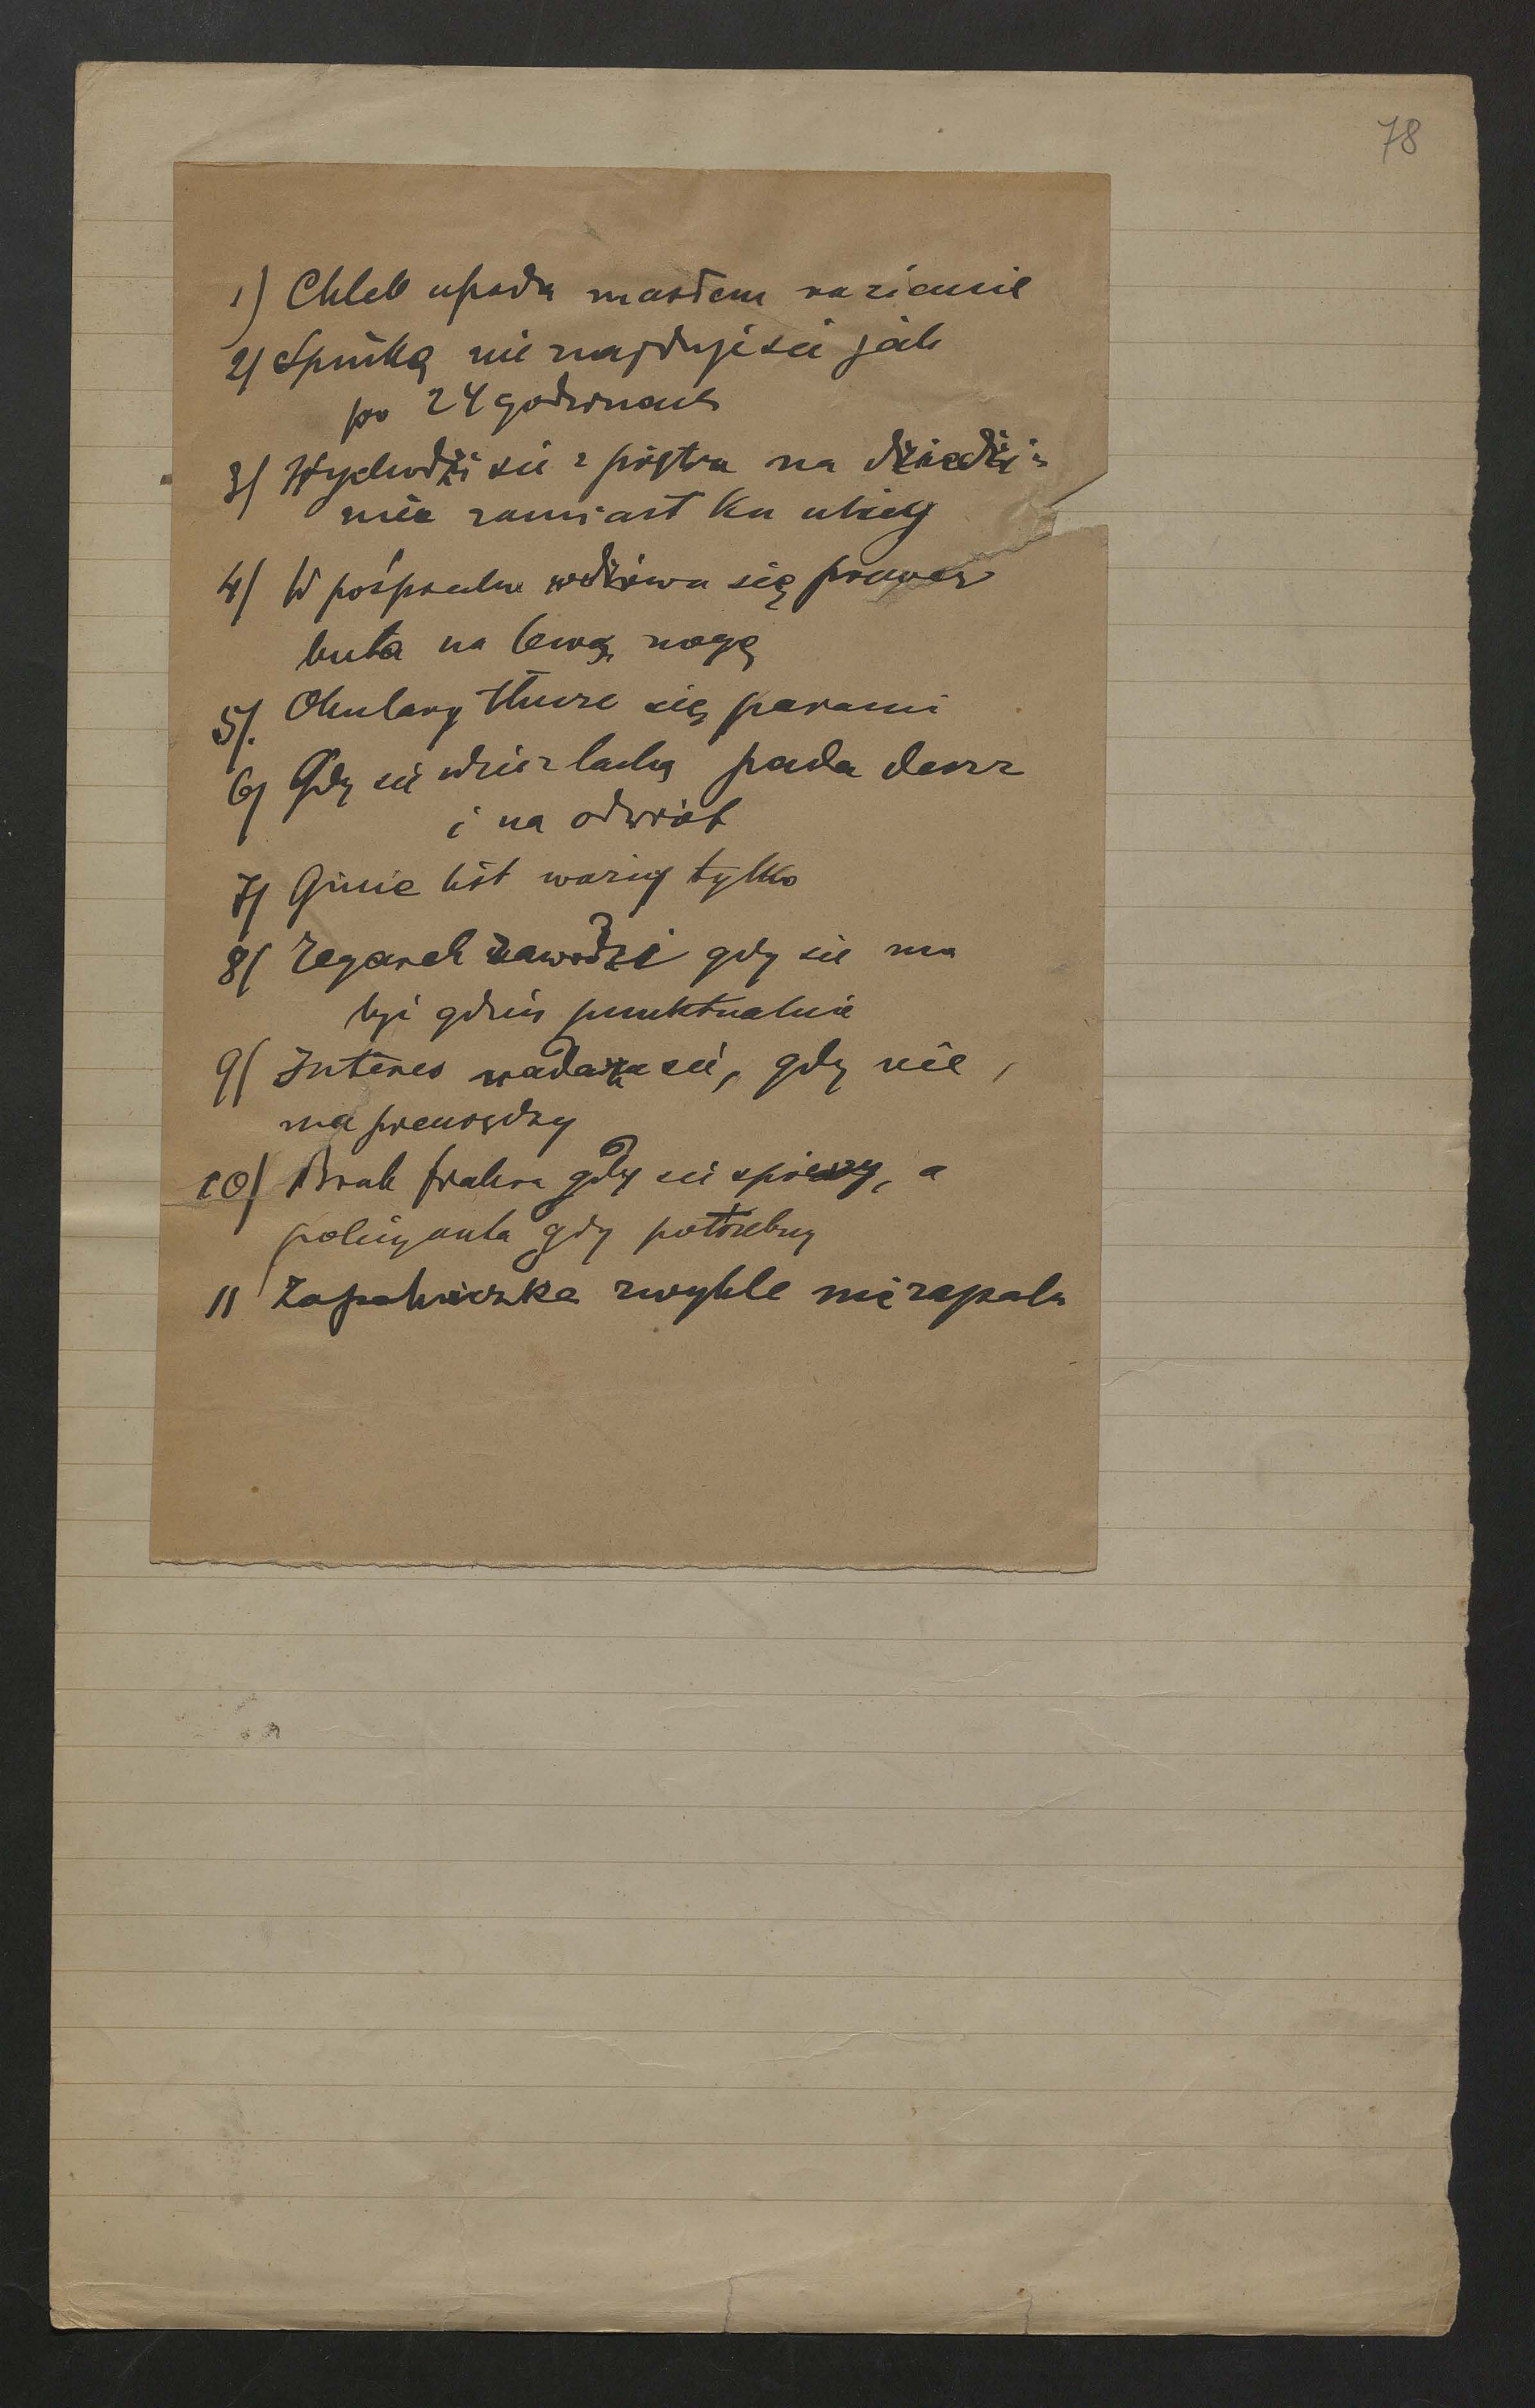 78
1) Chleb upada masłem na ziemię
2) Spinkę nie znajduje się jak
po 24 godzinach
3) Wychodzi się z piętra na dziedzi=
niec zamiast ku ulicy
4) W pośpiechu wdziewa się prawego
buta na lewą nogę
5). Okulary tłucze się parami
6) Gdy się idzie z laską pada deszcz
i na odwrót
7) Ginie list ważny tylko
8) Zegarek zawodzi gdy się ma
być gdzieś punktualnie
9) Interes nadarza się, gdy nie
ma pieniędzy
10) Brak fiakra gdy się spieszy, a
policyanta gdy potrzebny
11 Zapalniczka zwykle nie zapala